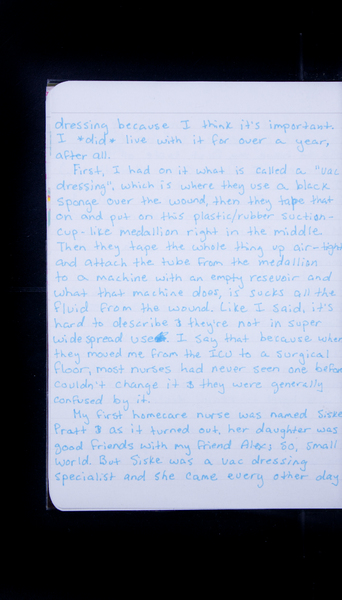 dressing because I think it's important.
I *did* live with it for over a year,
after all.
First, I had on it what is called a "vac
dressing", which is where they use a black
sponge over the wound, then they tape that
on and put on this plastic/rubber suction-
cup-like medallion right in the middle.
Then they tape the whole thing up air-tight
and attach the tube from the medallion
to a machine with an empty resevoir and
what that machine does, is sucks all the
fluid from the wound. Like I said, it's
hard to describe & they're not in super
widespread use. I say that because when
they moved me from the ICU to a surgical
floor, most nurses had never seen one before
couldn't change it & they were generally
confused by it.
My first homecare nurse was named Siske
Pratt & as it turned out, her daughter was
good friends with my friend Alex; so, small
world. But Siske was a vac dressing
specialist and she came every other day